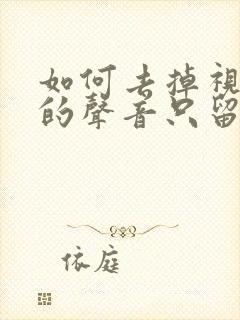 如何去掉視
的聲音只留
依庭